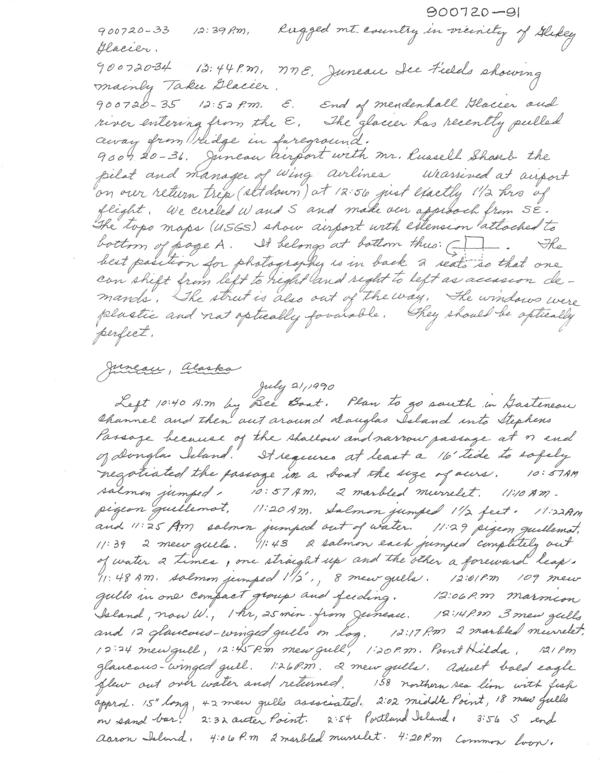 900720-91
900720-33 12:39 P.M. Rugged mt. country in vicinity of Gilkey
Glacier.
900720-34 12:44 P.M. NNE. Juneau Ice Fields showing
mainly Taku Glacier.
900720-35 12:52 P.M. E. End of Mendenhall Glacier and
river entering from the E. The glacier has recently pulled
away from ridge in foreground.
900720-36. Juneau airport with Mr. Russell the
pilot and manager of Wing Airlines We arrived at airport
on our return trip (setdown) at 12:56 just exactly 1 1/2 hrs of
flight. We circled W and S and made our approach from SE.
The topo maps (USGS) show airport with extension attached to
bottom of page A. It belongs at bottom thus: . The
best position for photography is in back 2 seats so that one
can shift from left to right and right to left as occasion de-
mands. The strut is also out of the way. The windows were
plastic and not optically favorable. They should be optically
perfect.
Juneau, Alaska
July 21, 1990
Left 10:40 A.M by Boat. Plan to go south in Gastineau
Channel and then out around Douglas Island into Stephens
Passage because of the shallow and narrow passage at N end
of Douglas Island. It requires at least a 16' tide to safely
negotiated the passage in a boat the size of ours. 10:57 AM
salmon jumped. 10:57 A.M. 2 marbled murrelet. 11:10 A.M.
pigeon guillemot. 11:20 A.M. Salmon jumped 1 1/2 feet. 11:22 AM
and 11:25 AM salmon jumped out of water. 11:29 pigeon guillemot.
11:39 2 mew gulls. 11:43 2 salmon each jumped completely out
of water 2 times, one straight up and the other a foreward leap.
11:48 A.M. salmon jumped 1 1/2'., 8 mew gulls. 12:01 P.M 109 mew
gulls in one compact group and feeding. 12:06 P.M Marmion
Island, now W., 1 hr, 25 min from Juneau. 12:14 P.M 3 mew gulls
and 12 glaucous-winged gulls on log. 12:17 P.M 2 marbled murrelet.
12:24 mew gull, 12:45 P.M mew gull, 1:20 P.M. Point Hilda. 1:21 PM
glaucous-winged gull. 1:26 P.M. 2 mew gulls. Adult bald eagle
flew out over water and returned. 1:58 northern sea lion with fish
approx. 15" long, 42 mew gulls associated. 2:02 Middle Point, 18 mew gulls
on sand bar. 2:32 Outer Point. 2:54 Portland Island. 3:56 S end
Aaron Island. 4:06 P.M 2 marbled murrelet. 4:20 P.M Common loon.